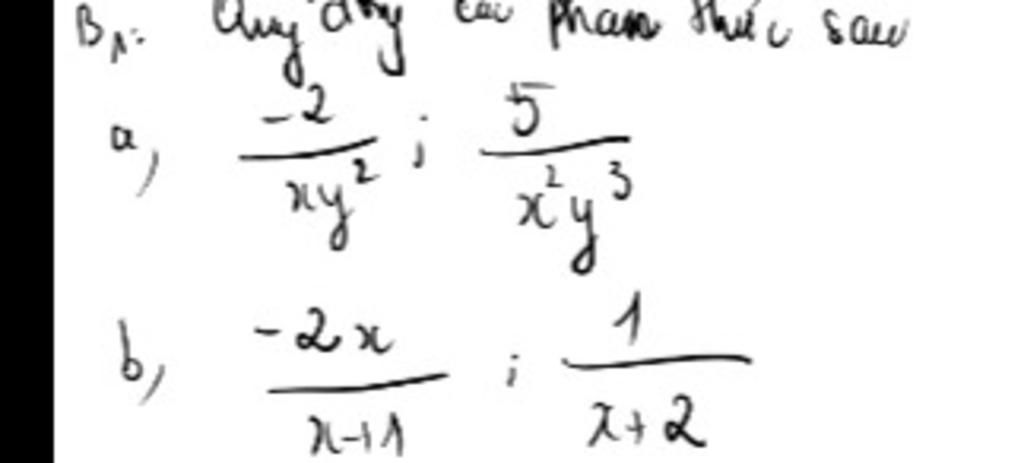 B1: Quy đồng các phân thức sau
a, -2/xy² ; 5/x²y³
b, -2x/x+1 ; 1/x+2